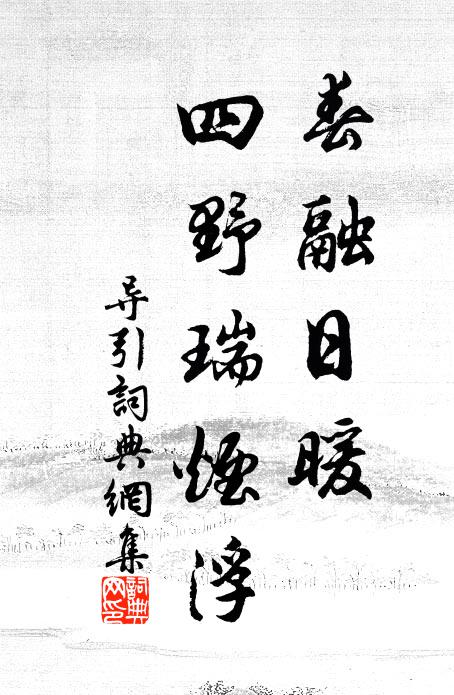 春融日暖
四野瑞煙浮
导引詞典網集
詞典网印